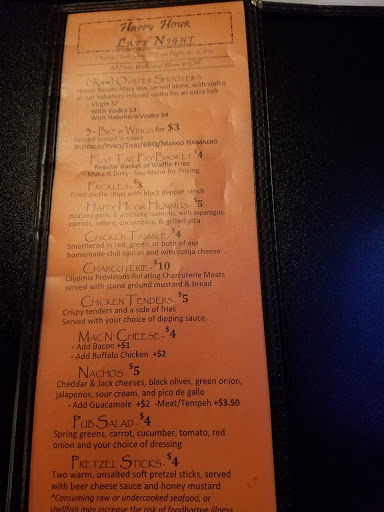 Happy Hour
Late Night
All Pints, Wells and Wines $1 Off
(Raw) Oyster Shooters
House Bloody Mary mix, served alone, with vodka,
or our habañero infused vodka for an extra kick
Virgin $2
With Vodka $3
With Habanero Vodka $4
3 - Brew Wings for $3
Served tossed in sauce
Buffalo/Pyro/Thai/BBQ/Mango Habanero
Flat Tail Fry Basket $4
Regular Basket of Waffle Fries
- Make It Dirty - See Menu for Pricing
Frickles - $3
Fried pickle chips with black pepper ranch
Happy Hour Hummus - $5
Roasted garlic & artichoke hummus, with asparagus,
carrots, celery, cucumbers, & grilled pita
Chicken Tamale $4
Smothered in red, green, or both of our
homemade chili sauces and with cotija cheese
Charcuterie - $10
Olympia Provisions Rotating Charcuterie Meats
served with stone ground mustard & bread
Chicken Tenders - $5
Crispy tenders and a side of fries
Served with your choice of dipping sauce.
Mac N Cheese - $4
- Add Bacon +$1
- Add Buffalo Chicken +$2
Nachos - $5
Cheddar & Jack cheeses, black olives, green onion,
jalapenos, sour cream, and pico de gallo
- Add Guacamole +$2 -Meat/Tempeh +$3.50
Pub Salad - $4
Spring greens, carrot, cucumber, tomato, red
onion and your choice of dressing
Pretzel Sticks - $4
Two warm, unsalted soft pretzel sticks, served
with beer cheese sauce and honey mustard
*Consuming raw or undercooked seafood, or
shellfish may increase the risk of foodborne illness